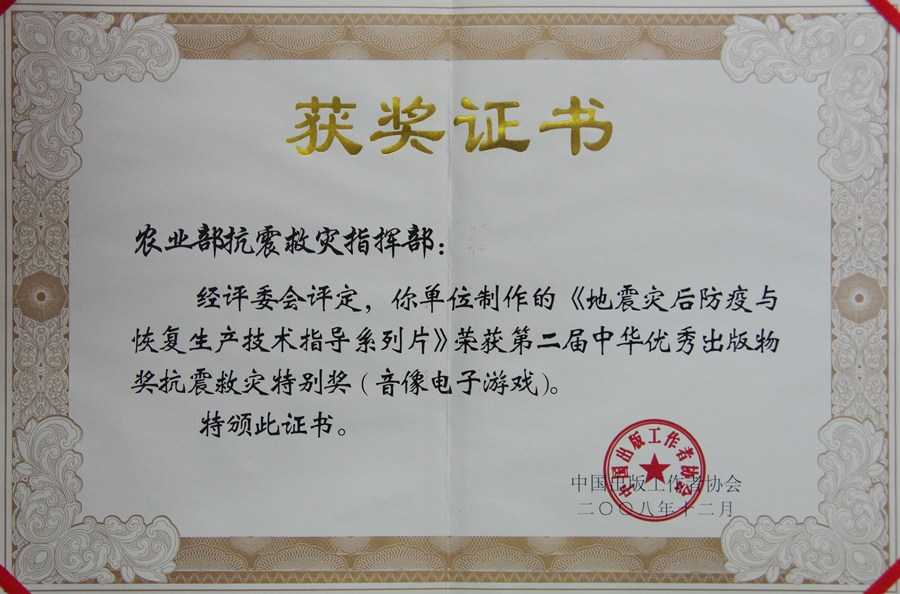 获奖证书
农业部抗震救灾指挥部：
经评委会评定，你单位制作的《地震灾后防疫与
恢复生产技术指导系列片》荣获第二届中华优秀出版物
奖抗震救灾特别奖（音像电子游戏）。
特颁此证书。
中国出版工作者协会
中国出版工作者协会
二〇〇八年十二月